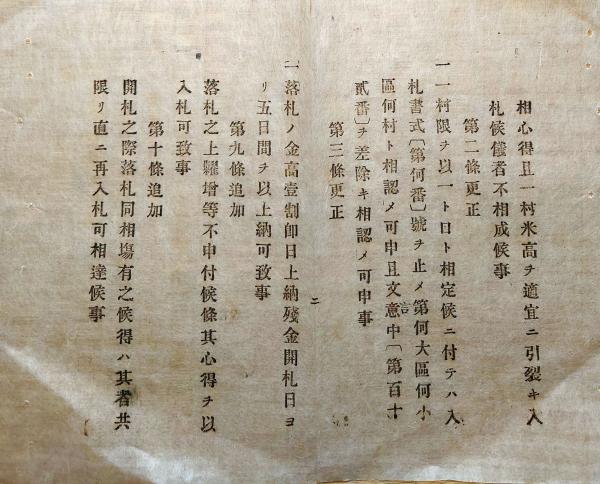 相心得且一村米高ヲ適宜ニ引裂キ入
札候儀者不相成候事
第二條更正
一一村限ヲ以一ト口ト相定候ニ付テハ入
札書式〔第何番〕號ヲ止メ第何大區何小
區何村ト相認メ可申且文意中〔第百十
貳番〕ヲ差除キ相認メ可申事
言
第三條更正
一落札ノ金高壹割卽日上納殘金開札日ヨ
リ五日間ヲ以上納可致事
第九條追加
落札之上糶增等不申付候條其心得ヲ以
入札可致事
第十條追加
開札之際落札同相塲有之候得ハ其者共
限リ直ニ再入札可相達候事
ニ